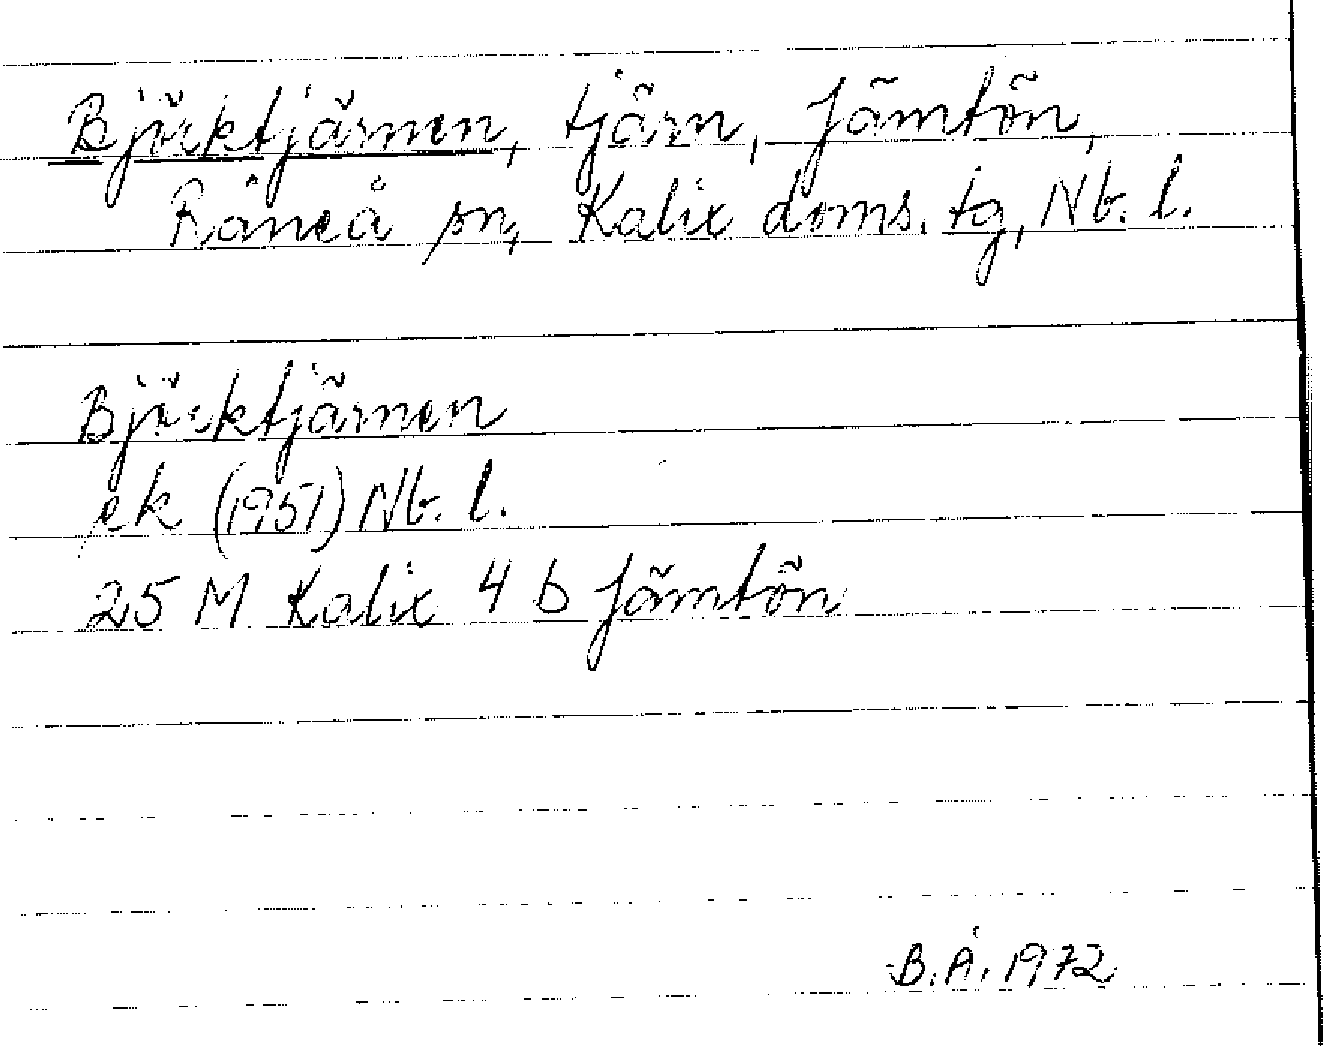 Björktjärnen, tjärn, Jämtön,
Råneå sn, Kalix doms. tg, Nb. l.
Björktjärnen
ek (1951) Nb. l.
25 M Kalix 4 b Jämtön
B. Å. 1972